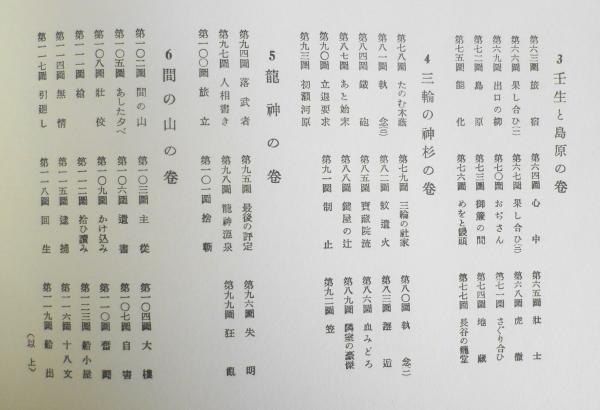 3 壬生と島原の卷
第六三圖 旅宿 第六四圖 心中 第六五圖 壯士
第六六圖 果し合ひ(二) 第六七圖 果し合ひ(三) 第六八圖 虎徹
第六九圖 出口の柳 第七〇圖 おぢさん 第七一圖 さぐり合ひ
第七二圖 島原 第七三圖 御簾の間 第七四圖 地藏
第七五圖 能化 第七六圖 めをと饅頭 第七七圖 長谷の籠堂
4 三輪の神杉の卷
第七八圖 たのむ木蔭 第七九圖 三輪の社家 第八〇圖 執念(二)
第八一圖 執念(三) 第八二圖 蚊遣火 第八三圖 邂逅
第八四圖 鐵砲 第八五圖 寶藏院流 第八六圖 血みどろ
第八七圖 あと始末 第八八圖 鍵屋の辻 第八九圖 隣室の豪傑
第九〇圖 立退要求 第九一圖 制止 第九二圖 笠
第九三圖 初瀨河原
5 龍神の卷
第九四圖 落武者 第九五圖 最後の評定 第九六圖 失明
第九七圖 人相書き 第九八圖 龍神溫泉 第九九圖 狂亂
第一〇〇圖 旅立 第一〇一圖 捨斬
6 間の山の卷
第一〇二圖 間の山 第一〇三圖 主從 第一〇四圖 大樓
第一〇五圖 あした夕べ 第一〇六圖 遺書 第一〇七圖 自害
第一〇八圖 壯佼 第一〇九圖 かけ込み 第一一〇圖 奮鬪
第一一一圖 槍 第一一二圖 拾ひ讀み 第一一三圖 船小屋
第一一四圖 無情 第一一五圖 逮捕 第一一六圖 十八文
第一一七圖 引廻し 第一一八圖 回生 第一一九圖 船出
(以上)